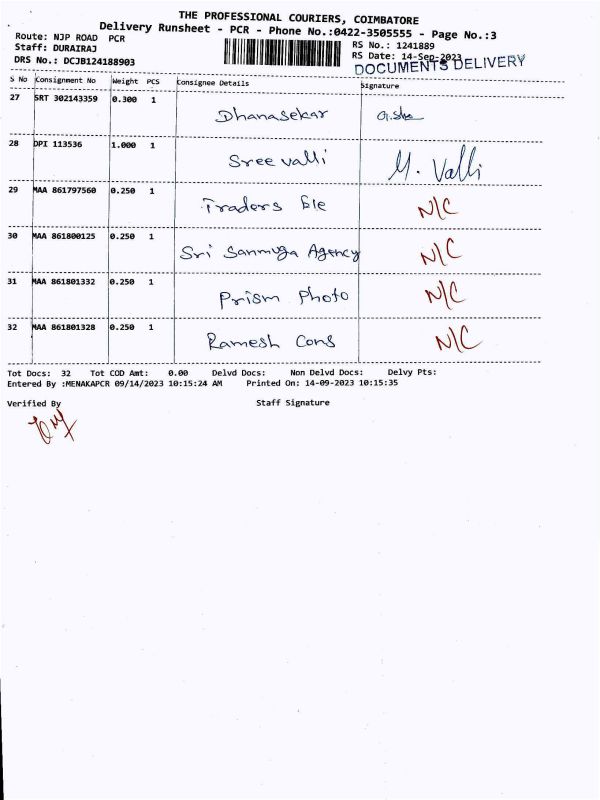 THE PROFESSIONAL COURIERS, COIMBATORE
Delivery Runsheet - PCR - Phone No.:0422-3505555 - Page No.:3
Route: NJP ROAD PCR
RS No.: 1241889
Staff: DURAIRAJ
RS Date: 14-Sep-2023
DRS No.: DCJB124188903
DOCUMENTS DELIVERY
S No Consignment No Weight PCS Consignee Details Signature
27 SRT 302143359 0.300 1 Dhanasekar
28 DPI 113536 1.000 1 Sree valli M. Valli
29 MAA 861797560 0.250 1 Traders N/C
30 MAA 861800125 0.250 1 Sri Sanmuga Agency N/C
31 MAA 861801332 0.250 1 Prism Photo N/C
32 MAA 861801328 0.250 1 Ramesh Cons N/C
Tot Docs: 32 Tot COD Amt: 0.00 Delvd Docs: Non Delvd Docs: Delvy Pts:
Entered By :MENAKAPCR 09/14/2023 10:15:24 AM Printed On: 14-09-2023 10:15:35
Verified By Staff Signature